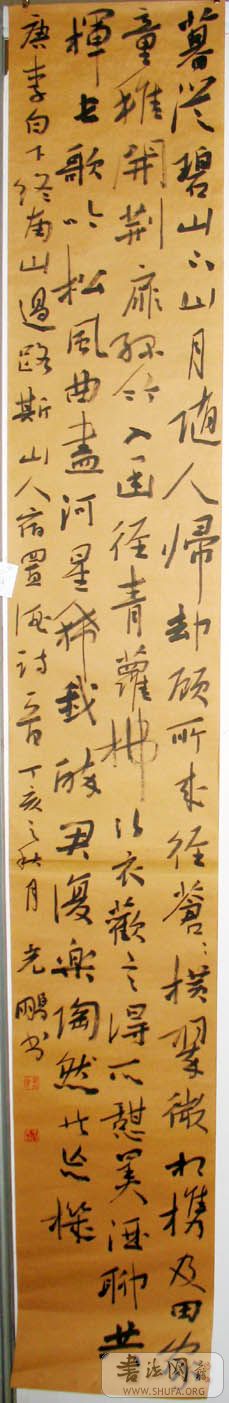 暮从碧山下山月随人歸却顾所来径蒼々横翠微相携及田家
童稚開荆扉绿竹入幽径青蘿拂行衣歡言得所憩美酒聊共
揮长歌吟松风曲盡河星稀我醉君復樂陶然共忘機
唐李白下终南山過路斯山人宿置酒诗一首 丁亥之秋月 光鵬书
書法网
WWW.SHUFA.ORG